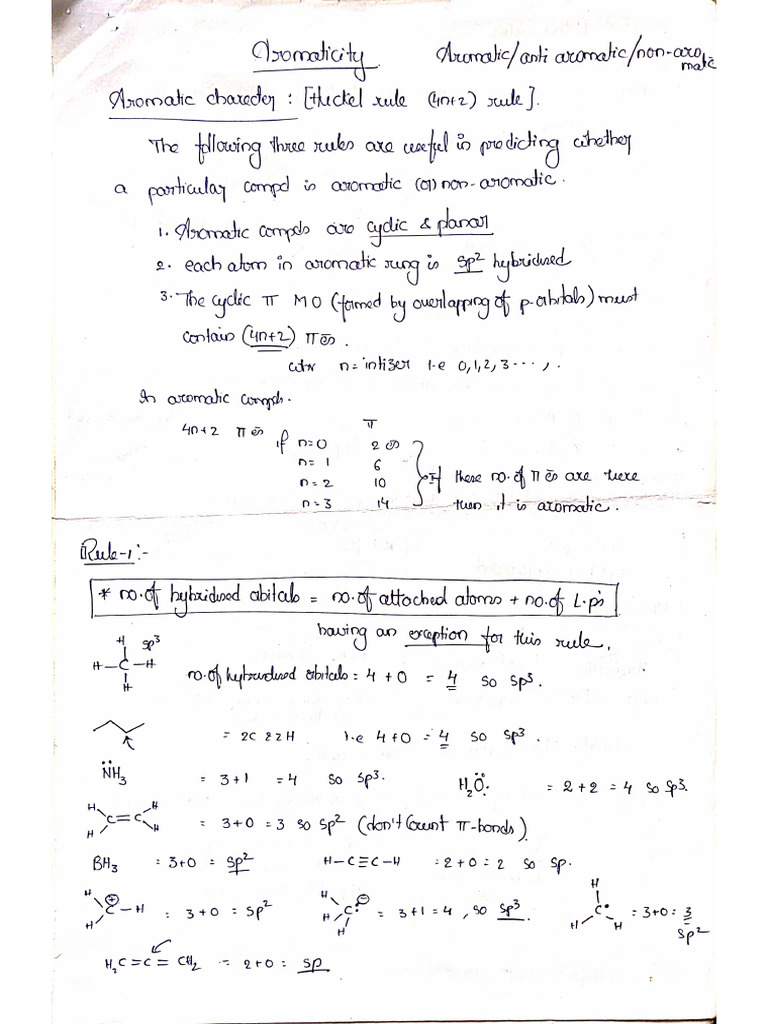 Aromaticity Aromatic/anti aromatic/non-aromatic
Aromatic charecter : [Huckel rule (4n+2) rule].
The following three rules are useful in predicting whether
a particular compd is aromatic (or) non-aromatic.
1. Aromatic compds are cyclic & planar
2. each atom in aromatic ring is sp² hybridised
3. The cyclic π MO (formed by overlapping of p-orbitals) must
contain (4n+2) πes.
n = intizer i.e 0,1,2,3 ....,.
In aromatic compds. π
4n+2 πes if n=0 2 es
n=1 6
n=2 10 If these no.of πes are there
n=3 14 then it is aromatic.
Rule-1:-
* no.of hybridised obitals = no.of attached atoms + no.of L.p's
having an exception for this rule.
H sp³
H-C-H
H
no.of hybridised orbitals = 4 + 0 = 4 so sp³.
= 2C & 2H i.e 4+0 = 4 so sp³.
N̈H₃ = 3+1 = 4 so sp³. H₂Ö: = 2+2 = 4 so sp³.
H H
C=C
H H
= 3+0 = 3 so sp² (don't Count π-bonds).
BH₃ = 3+0 = sp² H-C≡C-H = 2+0 = 2 so sp.
H
C⊕-H
H
= 3+0 = sp²
H
H-C:⊖
H
= 3+1 = 4, so sp³.
H
C•
H H
= 3+0 = 3
sp²
H₂C=C=CH₂ = 2+0 = sp